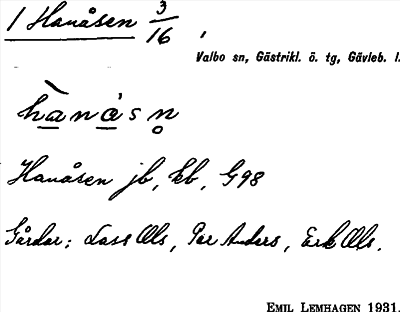 1 Hanåsen 3/16,
Valbo sn, Gästrikl. ö. tg, Gävleb. l.
hànásn
Hanåsen jb, kb, G98
Gårdar: Lass Ols, Per Anders, Erk Ols.
EMIL LEMHAGEN 1931.